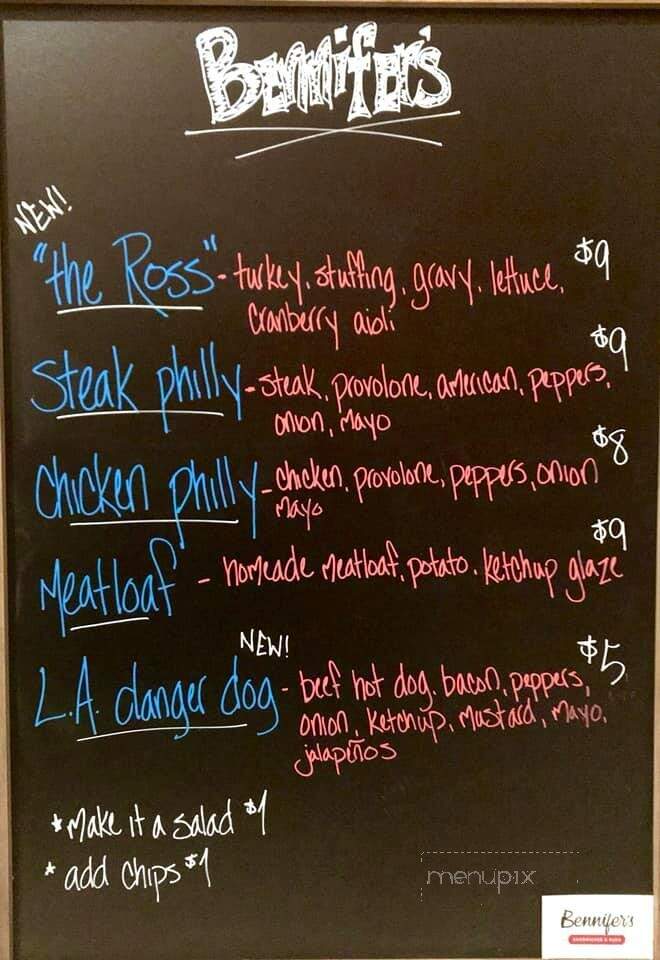 Bennifer's
NEW!
"the Ross" - turkey, stuffing, gravy, lettuce, $9
cranberry aioli
Steak philly - steak, provolone, american, peppers, $9
onion, mayo
Chicken philly - chicken, provolone, peppers, onion $8
mayo
Meatloaf - homeade meatloaf, potato, ketchup glaze $9
NEW!
L.A. danger dog - beef hot dog, bacon, peppers, $5
onion, ketchup, mustard, mayo,
jalapeños
*Make it a salad $1
* add chips $1
menupix
Bennifer's